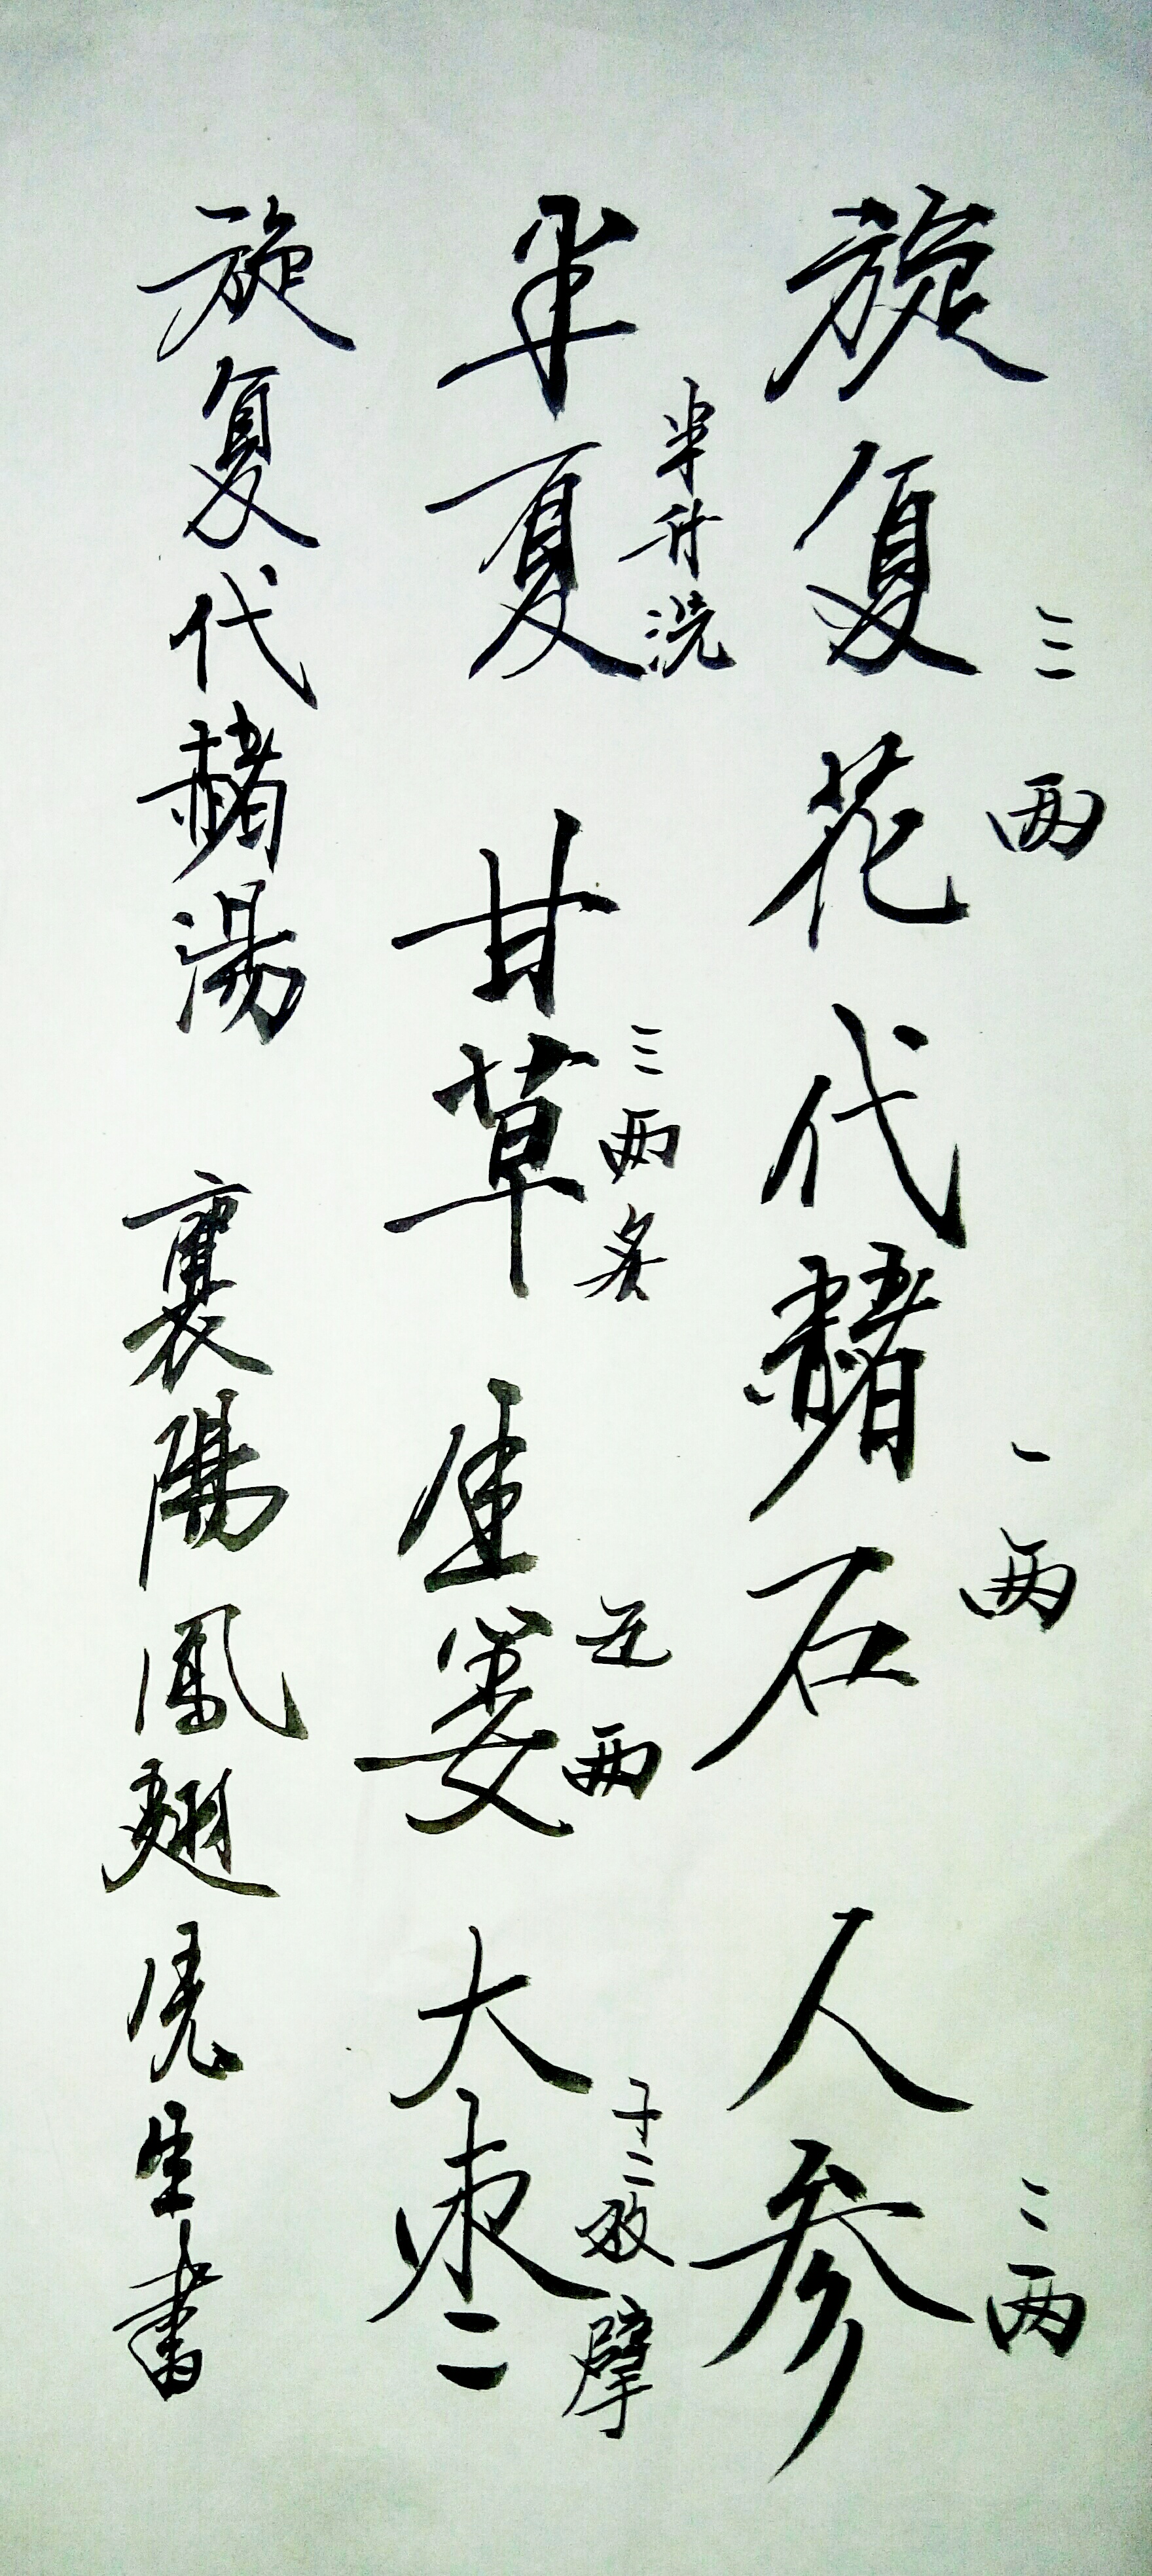 三两 一两 二两
旋复花 代赭石 人参
半升洗 三两炙 五两 十二枚擘
半夏 甘草 生姜 大枣
旋复代赭湯 襄陽鳳 生書